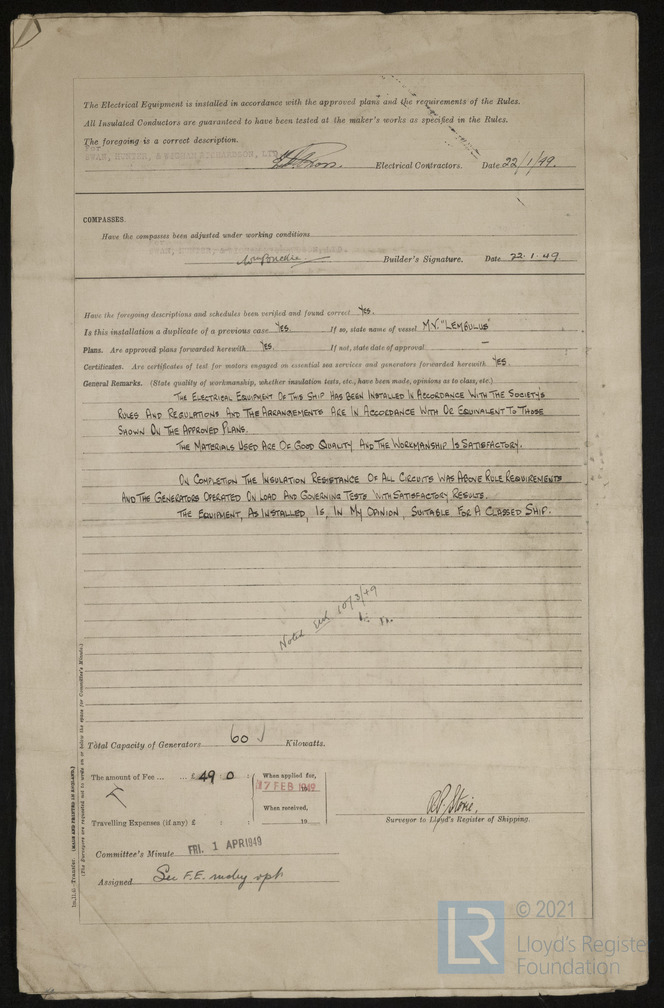 The Electrical Equipment is installed in accordance with the approved plans and the requirements of the Rules.
All Insulated Conductors are guaranteed to have been tested at the maker's works as specified in the Rules.
The foregoing is a correct description.
For
SWAN, HUNTER, & WIGHAM RICHARDSON, LTD.
Electrical Contractors. Date 22/1/49.
COMPASSES.
Have the compasses been adjusted under working conditions
SWAN, HUNTER, LTD.
Builder's Signature. Date 22.1.49
Have the foregoing descriptions and schedules been verified and found correct Yes.
Is this installation a duplicate of a previous case Yes If so, state name of vessel M.V. "LEMBULUS"
Plans. Are approved plans forwarded herewith Yes. If not, state date of approval –
Certificates. Are certificates of test for motors engaged on essential sea services and generators forwarded herewith Yes.
General Remarks. (State quality of workmanship, whether insulation tests, etc., have been made, opinions as to class, etc.)
THE ELECTRICAL EQUIPMENT OF THIS SHIP HAS BEEN INSTALLED IN ACCORDANCE WITH THE SOCIETY'S
RULES AND REGULATIONS AND THE ARRANGEMENTS ARE IN ACCORDANCE WITH OR EQUIVALENT TO THOSE
SHOWN ON THE APPROVED PLANS.
THE MATERIALS USED ARE OF GOOD QUALITY AND THE WORKMANSHIP IS SATISFACTORY.
ON COMPLETION THE INSULATION RESISTANCE OF ALL CIRCUITS WAS ABOVE RULE REQUIREMENTS
AND THE GENERATORS OPERATED ON LOAD AND GOVERNING TESTS WITH SATISFACTORY RESULTS.
THE EQUIPMENT, AS INSTALLED, IS, IN MY OPINION, SUITABLE FOR A CLASSED SHIP.
Noted 10/3/49
Total Capacity of Generators 60 Kilowatts.
The amount of Fee ... ... £ 49 : 0 :
When applied for,
17 FEB 1949
When received,
Travelling Expenses (if any) £ : : 19
R. Storie.
Surveyor to Lloyd's Register of Shipping.
Committee's Minute FRI. 1 APR 1949
Assigned See F.E. rpt
(MADE AND PRINTED IN ENGLAND.)
(The Surveyors are requested not to write on or below the space for Committee's Minute.)
© 2021
LR
Lloyd's Register
Foundation